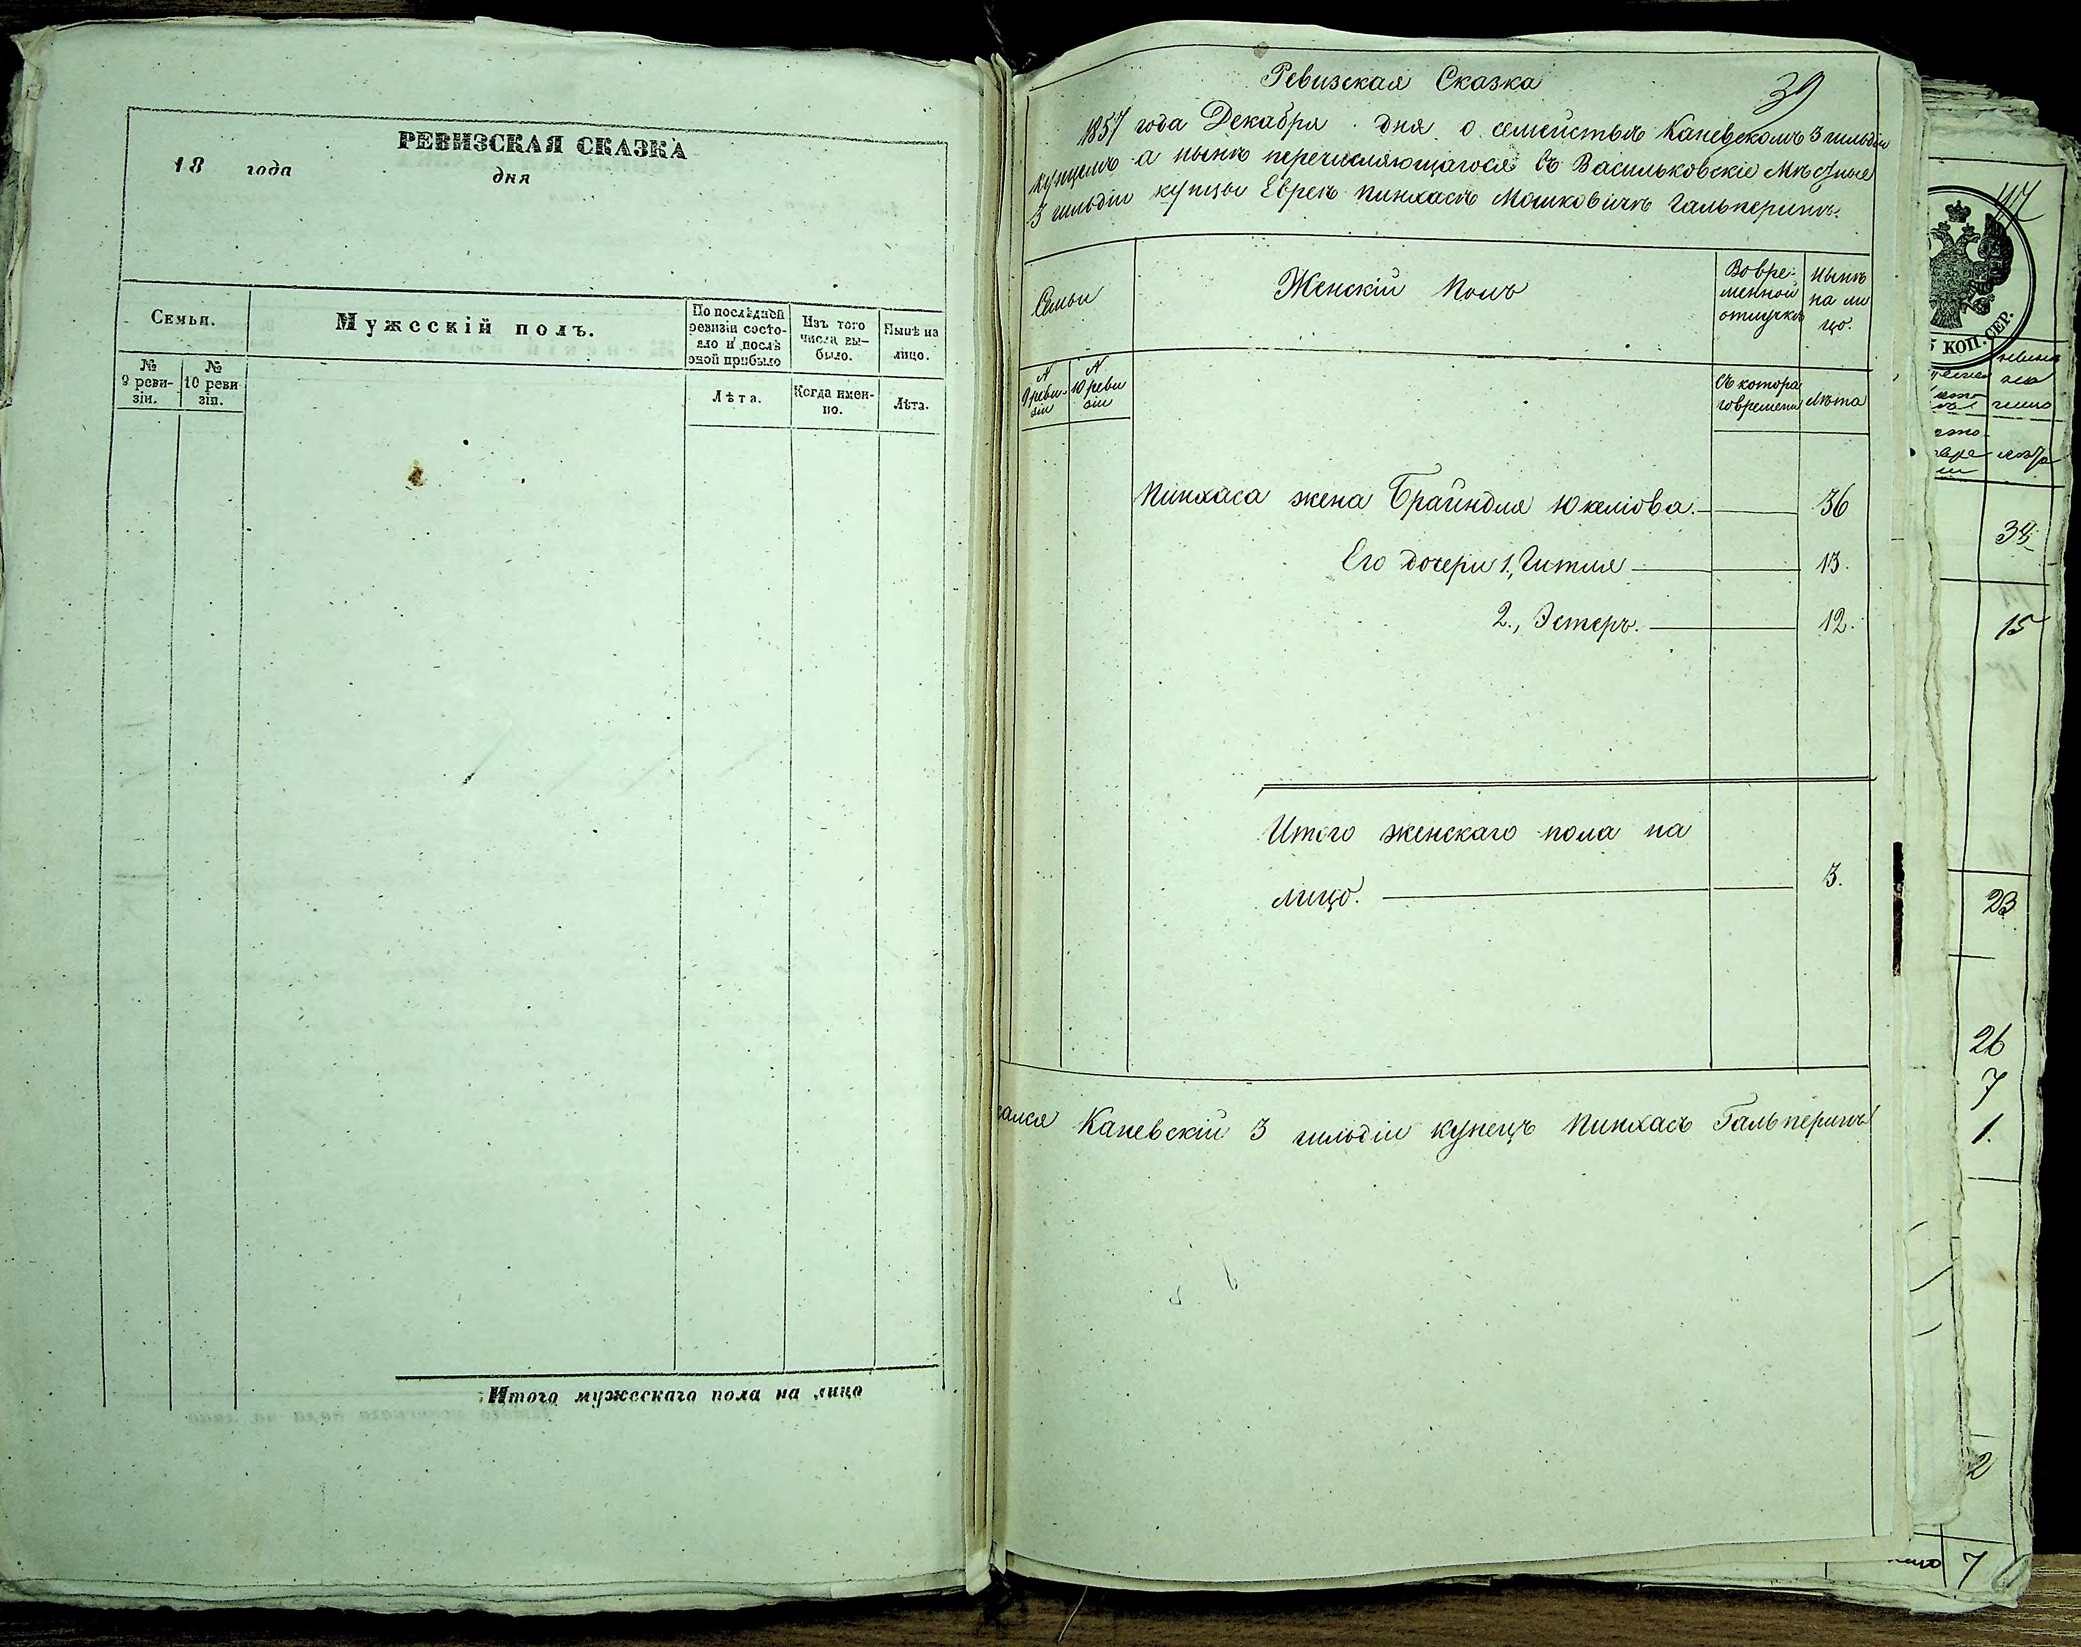 РЕВИЗСКАЯ СКАЗКА
18 года дня
Семьи.
Мужескій полъ.
По послѣдней ревизіи состо-
яло и послѣ оной прибыло
Изъ того числа вы-
было.
Нынѣ на лицо.
№ 9 реви-
зіи.
№ 10 реви
зіи.
Лѣта.
Когда имен-
но.
Лѣта.
Итого мужескаго пола на лицо
39
Ревизская Сказка
1857 года Декабря дня о семействѣ Каневскомъ 3 гильдіи
купцемъ а нынѣ перечисляющагося въ Васильковскіе Мѣстные
3 гильдіи купцы Еврей Пинхасъ Мошковичъ Гальперинъ.
Семьи
Женскій Полъ
Во вре-
менной
отлучкѣ
Нынѣ
на ли
цо.
N
9 реви-
зіи
N
10 реви
зіи
Съ котора
го времени
Лѣта
Пинхаса жена Брайндля Юкеліова. 36
Его дочери 1., Гитля 13.
2., Эстеръ. 12.
Итого женскаго пола на
лицо. 3.
сался Каневскій 3 гильдіи купецъ Пинхасъ Гальперинъ
47
5 КОП. СЕР.
38
15
23
26
7
1.
2
7